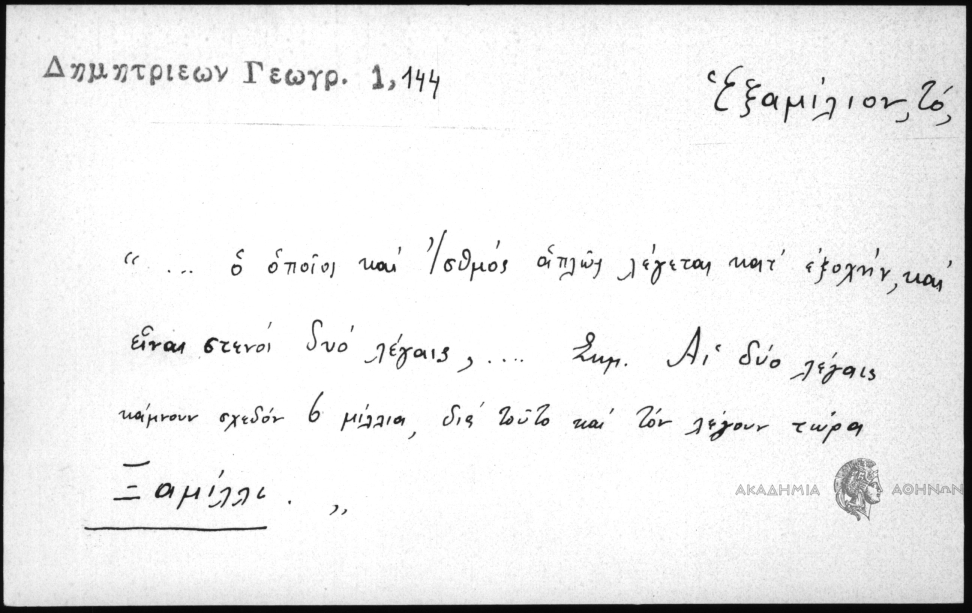 Δημητριεων Γεωγρ. 1,144
Ἑξαμίλιον, τό,
“ ... ὁ ὁποῖος καί Ἰσθμός ἁπλῶς λέγεται κατ' ἐξοχήν, καί
εἶναι στενοί δυό λέγαις, .... Σημ. Αἱ δύο λέγαις
κάμνουν σχεδόν 6 μίλλια, διά τοῦτο καί τόν λέγουν τώρα
Ξαμίλλι. „
ΑΚΑΔΗΜΙΑ ΑΘΗΝΩΝ